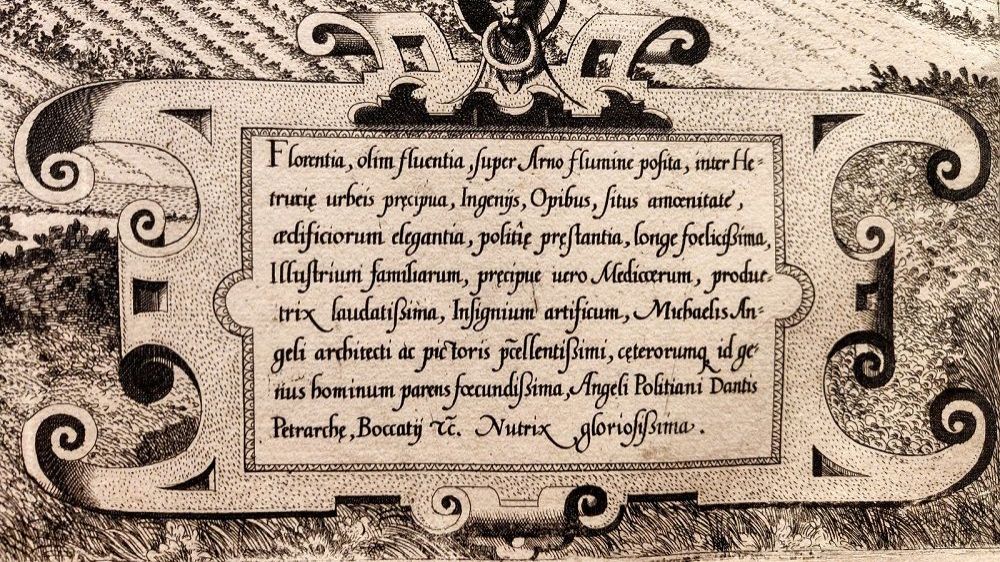 Florentia, olim fluentia, ſuper Arno flumine poſita, inter He=
trurię urbeis pręcipua, Ingenijs, Opibus, ſitus amœnitate,
ædificiorum elegantia, politię pręſtantia, longe foeliciſſima,
Illuſtrium familiarum, pręcipue uero Mediceerum, produc=
trix laudatiſſima, Inſignium artificum, Michaelis An=
geli architecti ac pictoris p̄cellentiſſimi, cęterorumq id ge=
nus hominum parens fœcundiſſima, Angeli Politiani Dantis
Petrarchę, Boccatij ⁊c̄. Nutrix glorioſiſſima.